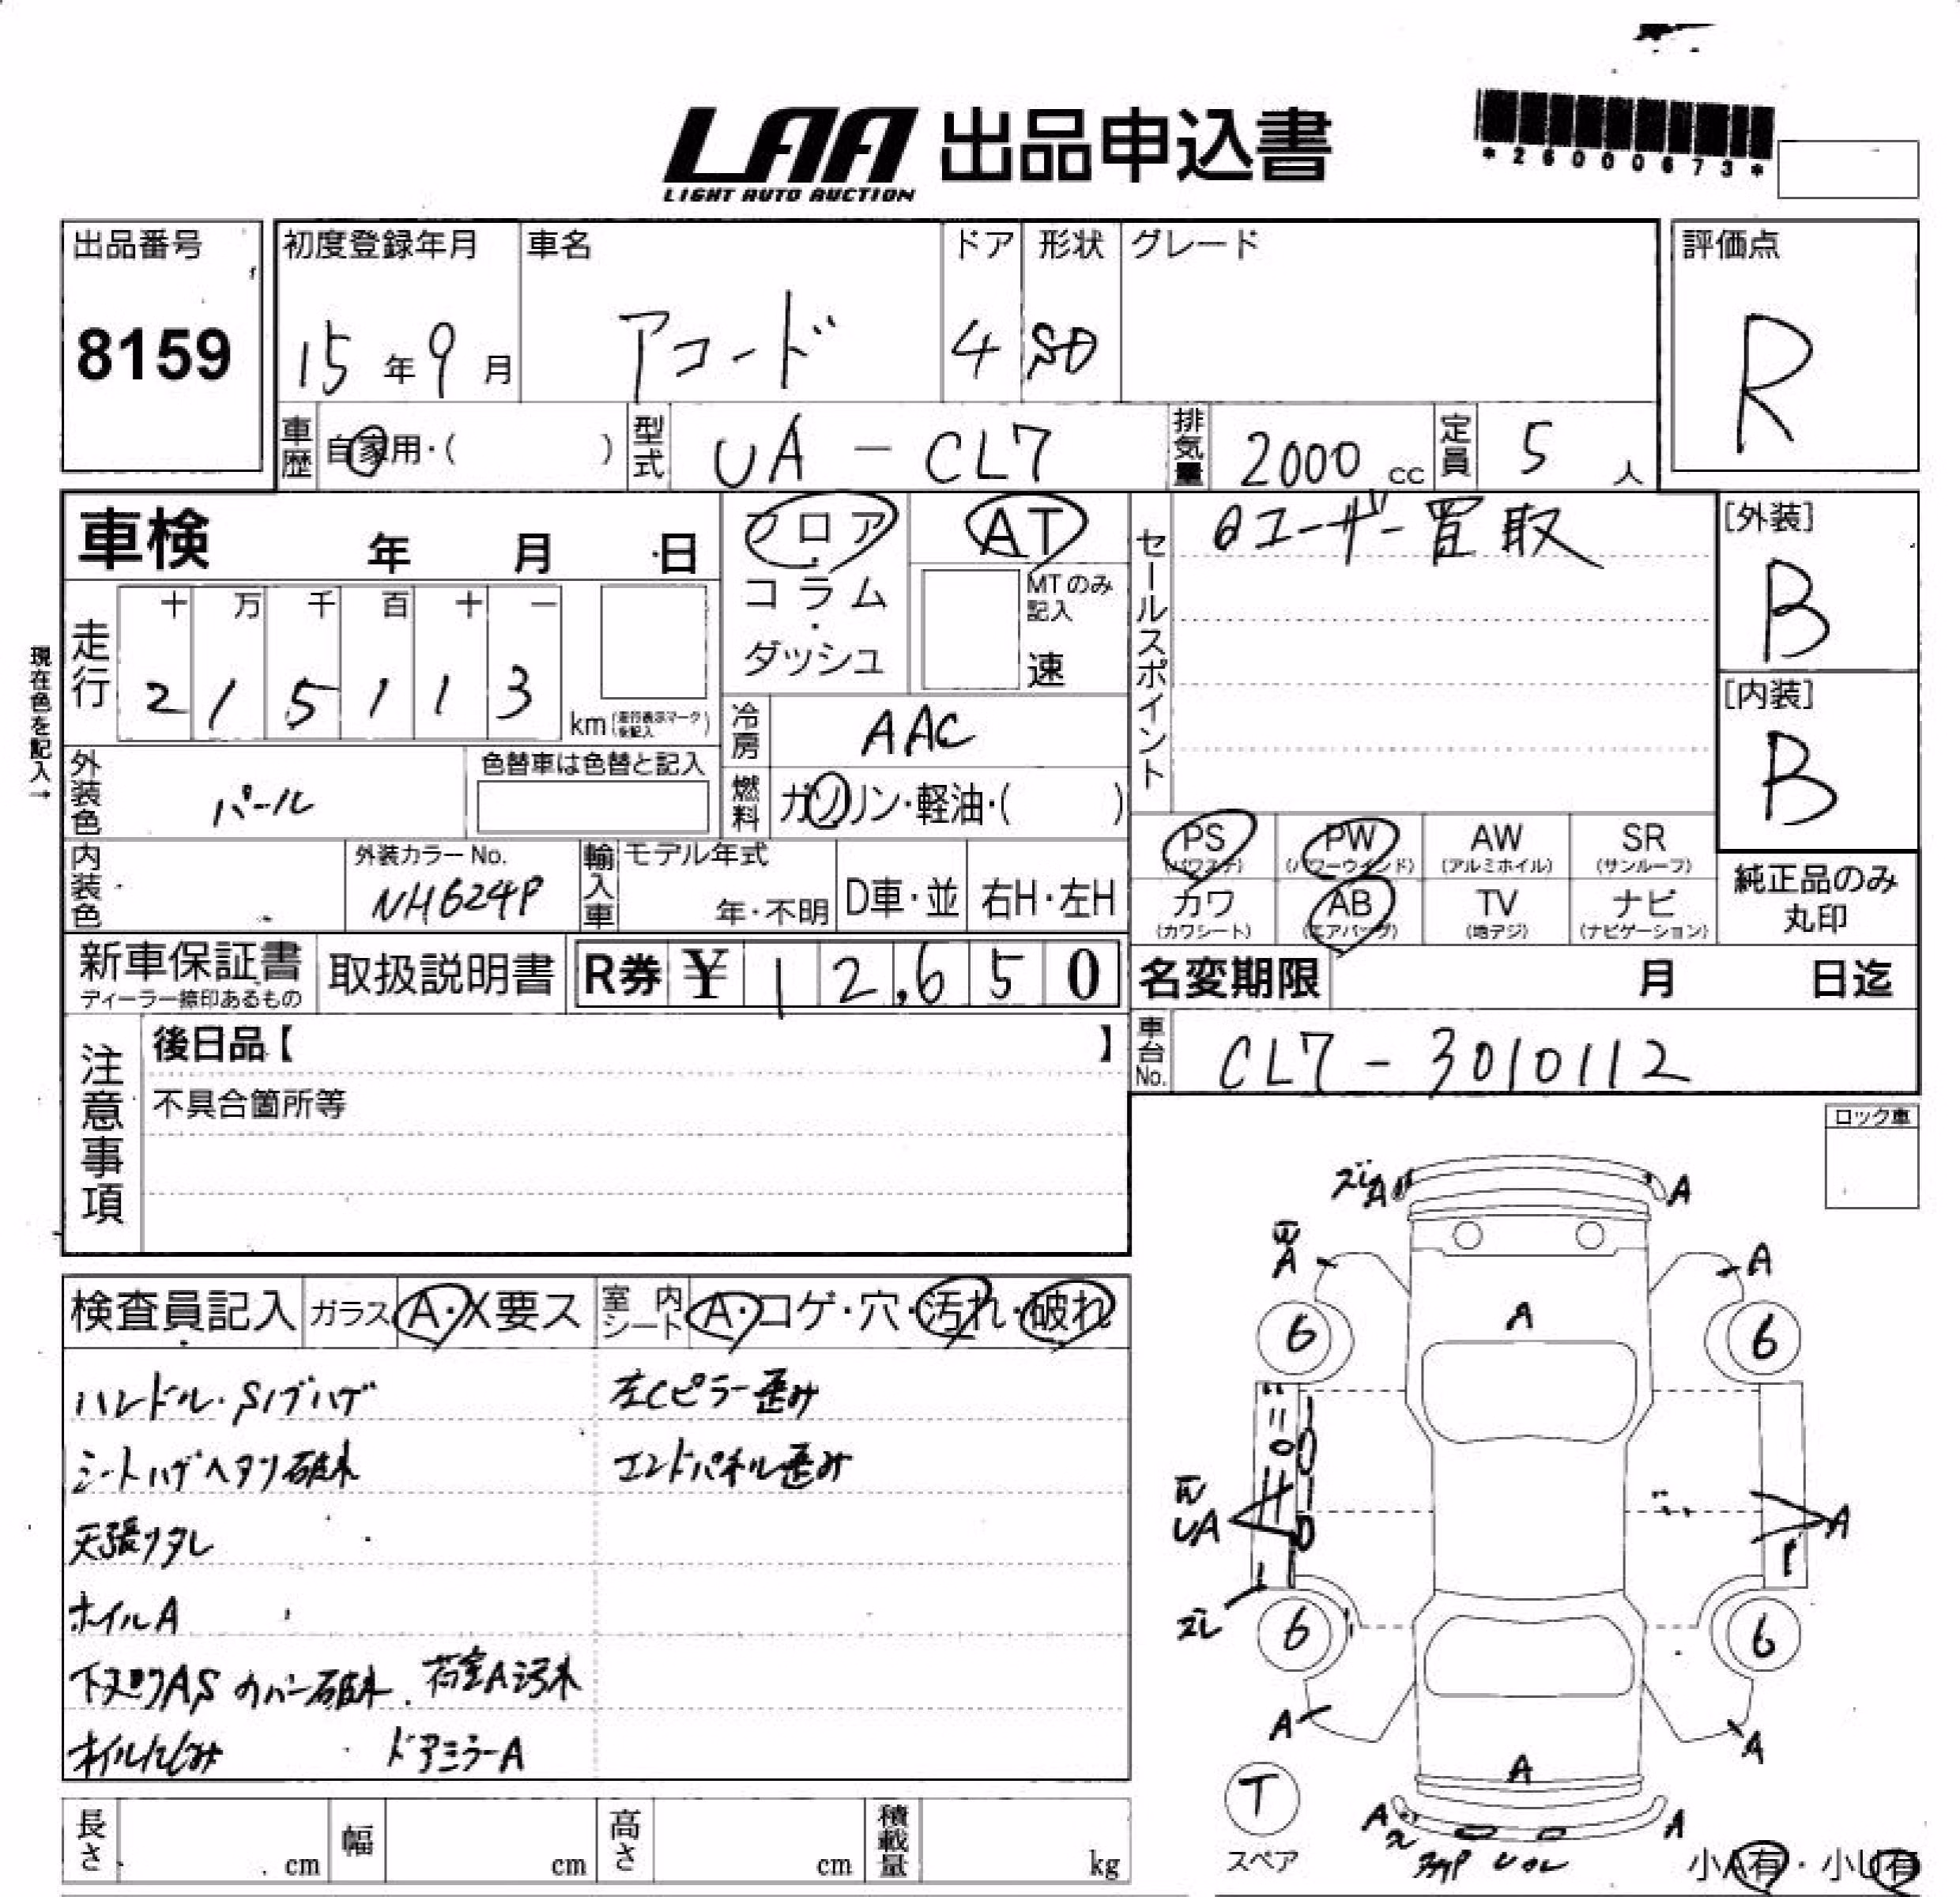 LAA 出品申込書
LIGHT AUTO AUCTION
*26000673*
出品番号
8159
初度登録年月 車名 ドア 形状 グレード
15年9月 アコード 4 SD
評価点
R
車歴 自家用・( ) 型式 UA-CL7 排気量 2000cc 定員 5人
車検 年 月 日
フロア・コラム・ダッシュ
AT
MTのみ記入
速
セールスポイント
ユーザー買取
[外装]
B
[内装]
B
現在色を記入→
走行 十 万 千 百 十 一
2 1 5 1 1 3 km (走行表示マークを記入)
冷房 AAC
外装色 パール 色替車は色替と記入
燃料 ガソリン・軽油・( )
内装色 外装カラーNo. NH624P
輸入車 モデル年式 年・不明 D車・並 右H・左H
PS (パワステ) PW (パワーウインド) AW (アルミホイル) SR (サンルーフ)
カワ (カワシート) AB (エアバッグ) TV (地デジ) ナビ (ナビゲーション)
純正品のみ丸印
新車保証書
ディーラー捺印あるもの
取扱説明書
R券 ¥12,650
名変期限 月 日迄
車台No. CL7-3010112
注意事項
後日品【 】
不具合箇所等
ロック車
検査員記入 ガラス A・X要ス 室内シート A・コゲ・穴・汚れ・破れ
ハンドル・Sノブハゲ
左Cピラー歪み
シートハゲヘタリ破れ
エンドパネル歪み
天張リタレ
ホイルA
下廻りAS カバー破れ. 荷室A汚れ
オイルにじみ ドアミラーA
ズレ A A
A A
A
6 6
UA A
ズレ
6 6
A A
A
T
スペア
A A
小A有・小U有
長さ cm 幅 cm 高さ cm 積載量 kg